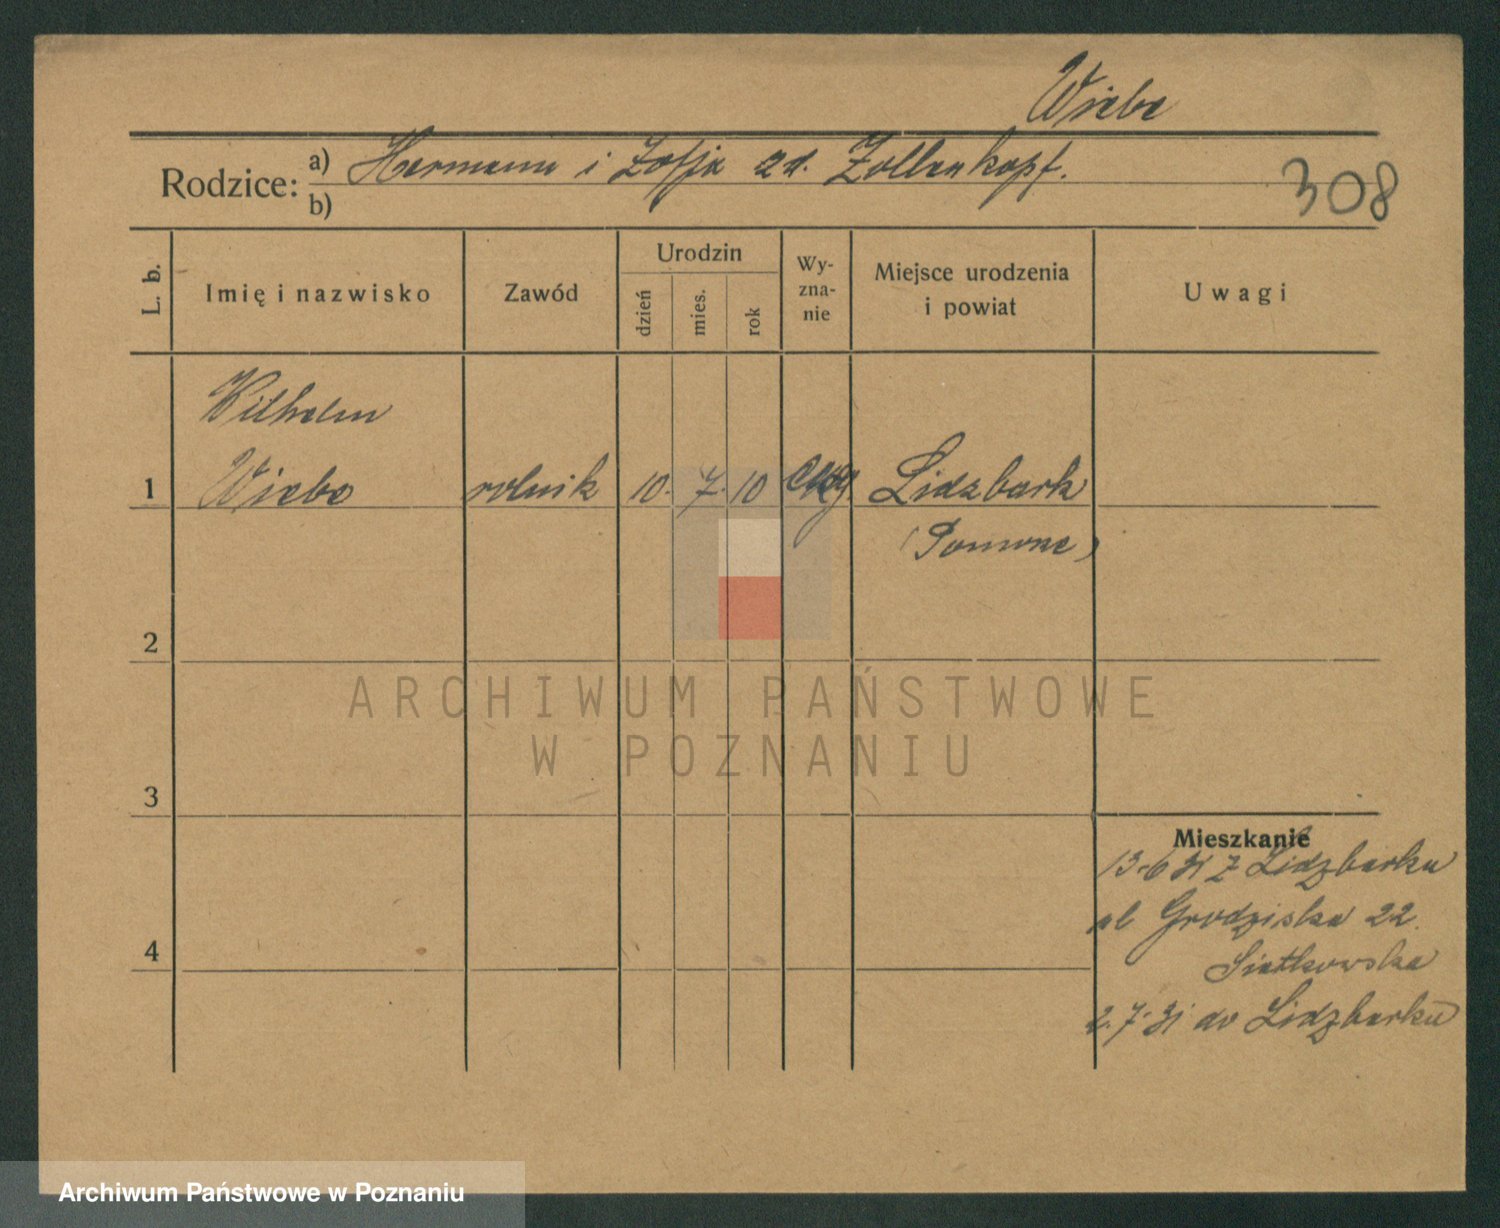 Wiebe
Rodzice: a) Hermann i Zofja zd. Zollenkopf.
b)
308
L. b. Imię i nazwisko Zawód Urodzin dzień mies. rok Wyznanie Miejsce urodzenia i powiat Uwagi
Wilhelm
1 Wiebe rolnik 10. 7. 10 Lidzbark
(Pomorze)
2
ARCHIWUM PAŃSTWOWE
W POZNANIU
3
Mieszkanie
13.6 31 z Lidzbarku
ul Grodziska 22.
Siatkowska
4
2.7.31 do Lidzbarku
Archiwum Państwowe w Poznaniu